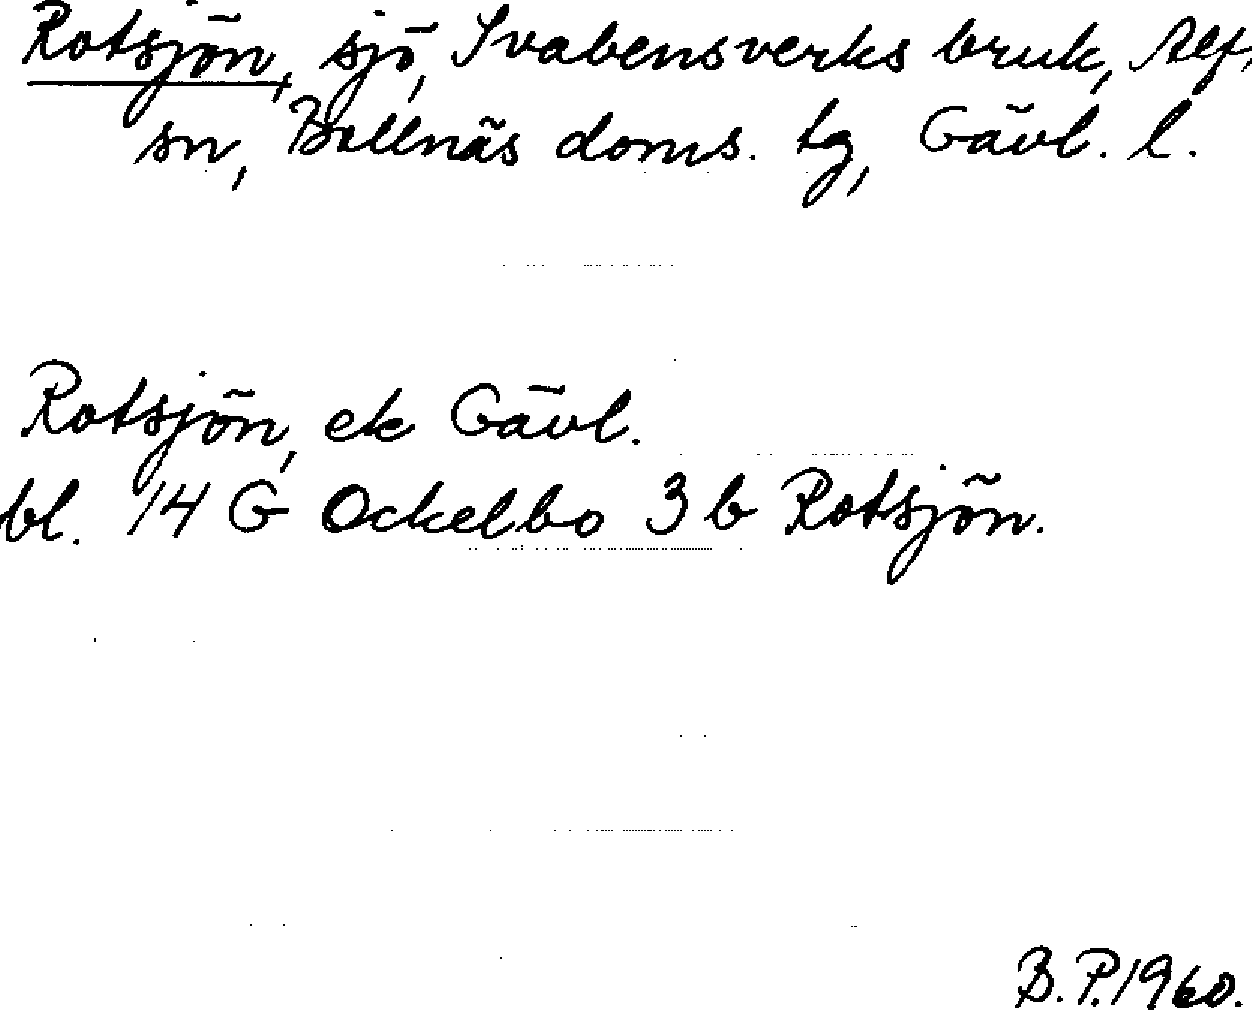 Rotsjön, sjö, Svabensverks bruk, Alf,
sn, Bollnäs doms. tg, Gävl. l.
Rotsjön, ek Gävl.
bl. 14 G Ockelbo 3 b Rotsjön.
B.P. 1960.